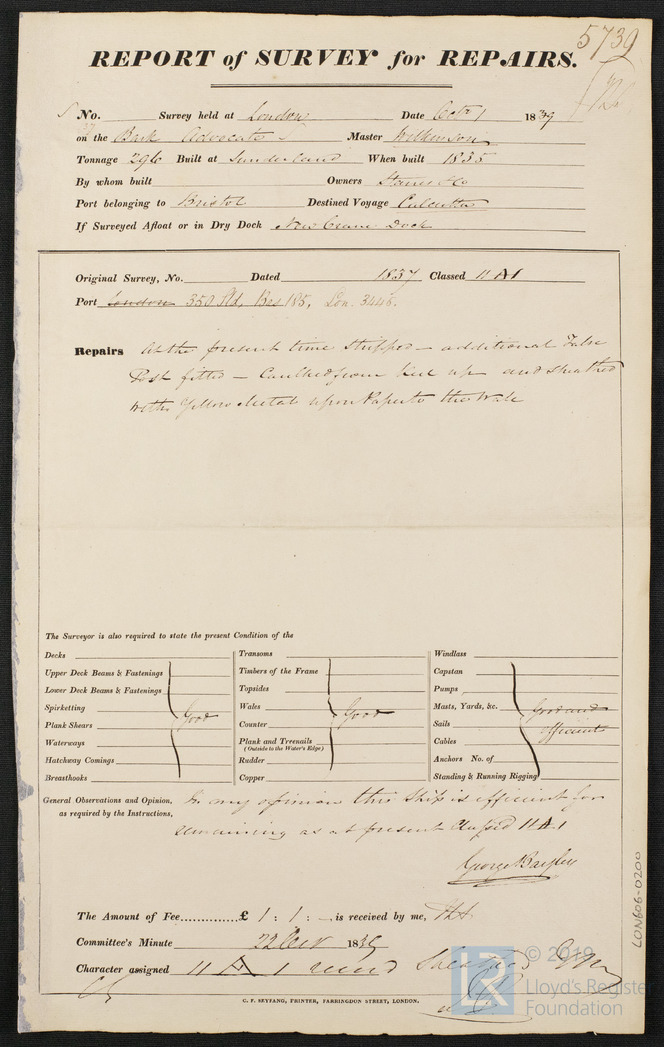 5739
REPORT of SURVEY for REPAIRS.
No. Survey held at London Date Octr 1 1839
on the Bark Advocate Master Wilkinson
Tonnage 296 Built at Sunderland When built 1835
By whom built Owners
Port belonging to Bristol Destined Voyage Calcutta
If Surveyed Afloat or in Dry Dock New Crane Dock
Original Survey, No. Dated 1837 Classed 11 A1
Port London 350 Sld, Bes 185, Lon. 3446.
Repairs At the present time stripped — additional False
Post fitted — Caulked from keel up and sheathed
with Yellow Metal upon Paper to the Wale
The Surveyor is also required to state the present Condition of the
Decks
Upper Deck Beams & Fastenings
Lower Deck Beams & Fastenings
Spirketting
Plank Shears
Waterways
Hatchway Comings
Breasthooks
Good
Transoms
Timbers of the Frame
Topsides
Wales
Counter
Plank and Treenails
(Outside to the Water's Edge)
Rudder
Copper
Good
Windlass
Capstan
Pumps
Masts, Yards, &c.
Sails
Cables
Anchors No. of
Standing & Running Rigging
Good and
efficient
General Observations and Opinion, In my opinion this Ship is efficient for
as required by the Instructions, remaining as at present Classed 11 A1
George Bayley
The Amount of Fee..............£ 1 : 1 : — is received by me,
Committee's Minute 22 Octr 1839
Character assigned 11 A 1 Sheathed
C. F. SEYFANG, PRINTER, FARRINGDON STREET, LONDON.
LON606-0200
LR
© 2019
Lloyd's Register
Foundation